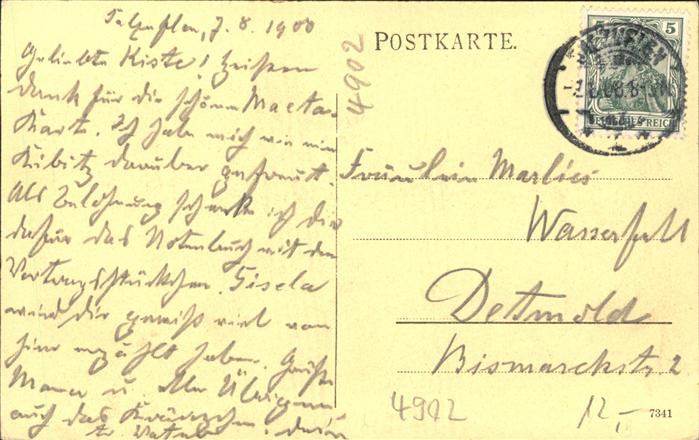 Salzuflen, 7. 8. 1908
Geliebte Kiste! Heißen
Dank für die schöne Maeta-
Karte. Ich habe mich wie ein
Kibitz darüber gefreut.
Als Belohnung schenke ich dir
dafür das Notenbuch mit den
Vortragsstückchen. Gisela
wird dir gewiß viel von
hier erzählt haben. Grüße
Mama u. alle Übrigen
auch das Kränzchen. dein
tr. Vater
4902
POSTKARTE.
5
DEUTSCHES REICH
Fräulein Marlies
Wasserfall
Detmold
Bismarckstr. 2
4902
12,-
7341